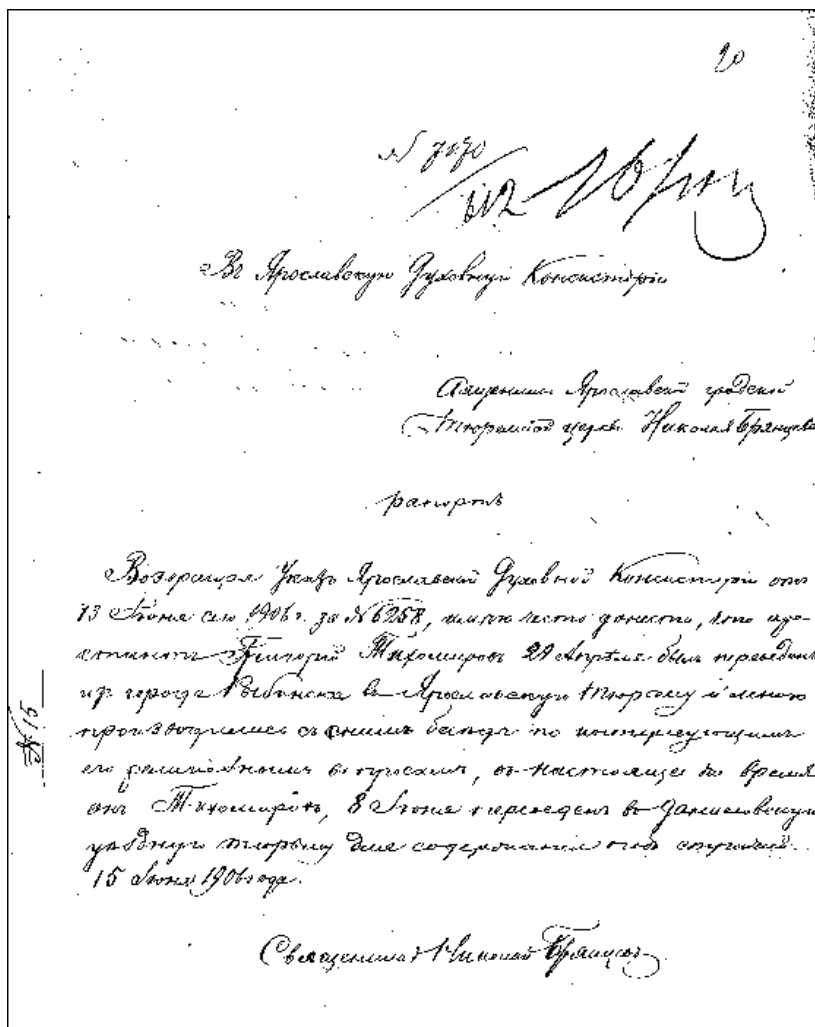 20
№ 7270
612
Въ Ярославскую Духовную Консисторію
Священника Ярославской градской
Тюремной церкви Николая Брянцева
рапортъ
Возвращая Указъ Ярославской Духовной Консисторіи отъ
13 Іюня сего 1906 г. за № 6258, имѣю честь донести, что аре-
стантъ Григорій Тихомировъ 29 Апрѣля былъ переведенъ
изъ города Рыбинска въ Ярославскую тюрьму и мною
производились съ нимъ бесѣды по интересующимъ
его религіознымъ вопросамъ, въ настоящее же время
онъ Тихомировъ, 8 Іюня переведенъ въ Даниловскую
уѣздную тюрьму для содержанія подъ стражей.
15 Іюня 1906 года.
Священникъ Николай Брянцевъ
№ 15